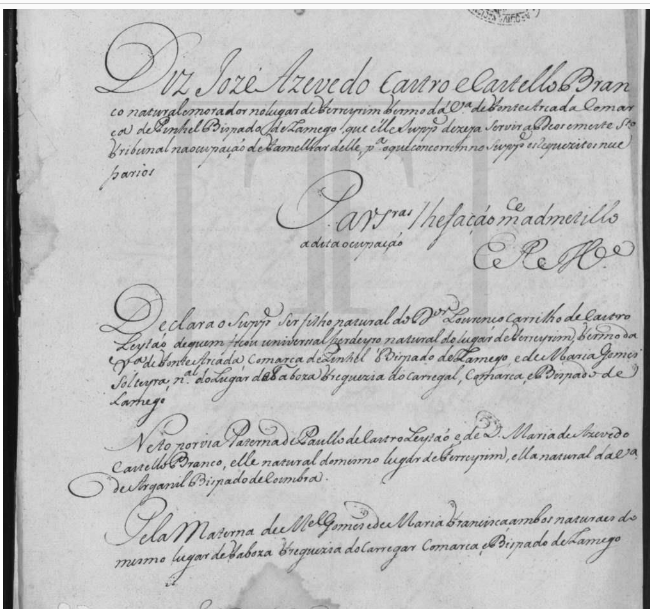 Diz Jozé Azevedo Castro e Castello Bran
co natural emorador nolugar de Ferreyrim termo da Vª de Fonte Arcada Comar
ca de Pinhel Bispado de Lamego, que elle Suppe dezeja servir a Deos e meste Sto
tribunal na ocupação de Familliar delle, pª oqui concorrem no Suppe os requezitos nece
sarios
P. a VSras lhe fação mce admetillo
a dita ocupação
E R Mce
Declara o Suppe ser filho natural do Dor Lourenco Carrilho de Castro
Leytão de quem ficou universal herdeyro natural do lugar de Ferreyrim termo da
Vª de Fonte Arcada Comarca de Pinhel Bispado de Lamego e de Maria Gomes
Solteyra, nal do Lugar de Taboza Freguezia do Carregal, Comarca, e Bispado de
Lamego
Neto por via Paterna de Paullo de Castro Leytão e de D. Maria de Azevedo
Castello Branco, elle natural do mismo lugar de Ferreyrim, ella natural da Vª
de Arganil Bispado de Coimbra.
Pela Materna de Mel Gomes e de Maria Francisca ambos naturaes do
mesmo lugar de Taboza Freguezia do Carregar Comarca, e Bispado de Lamego